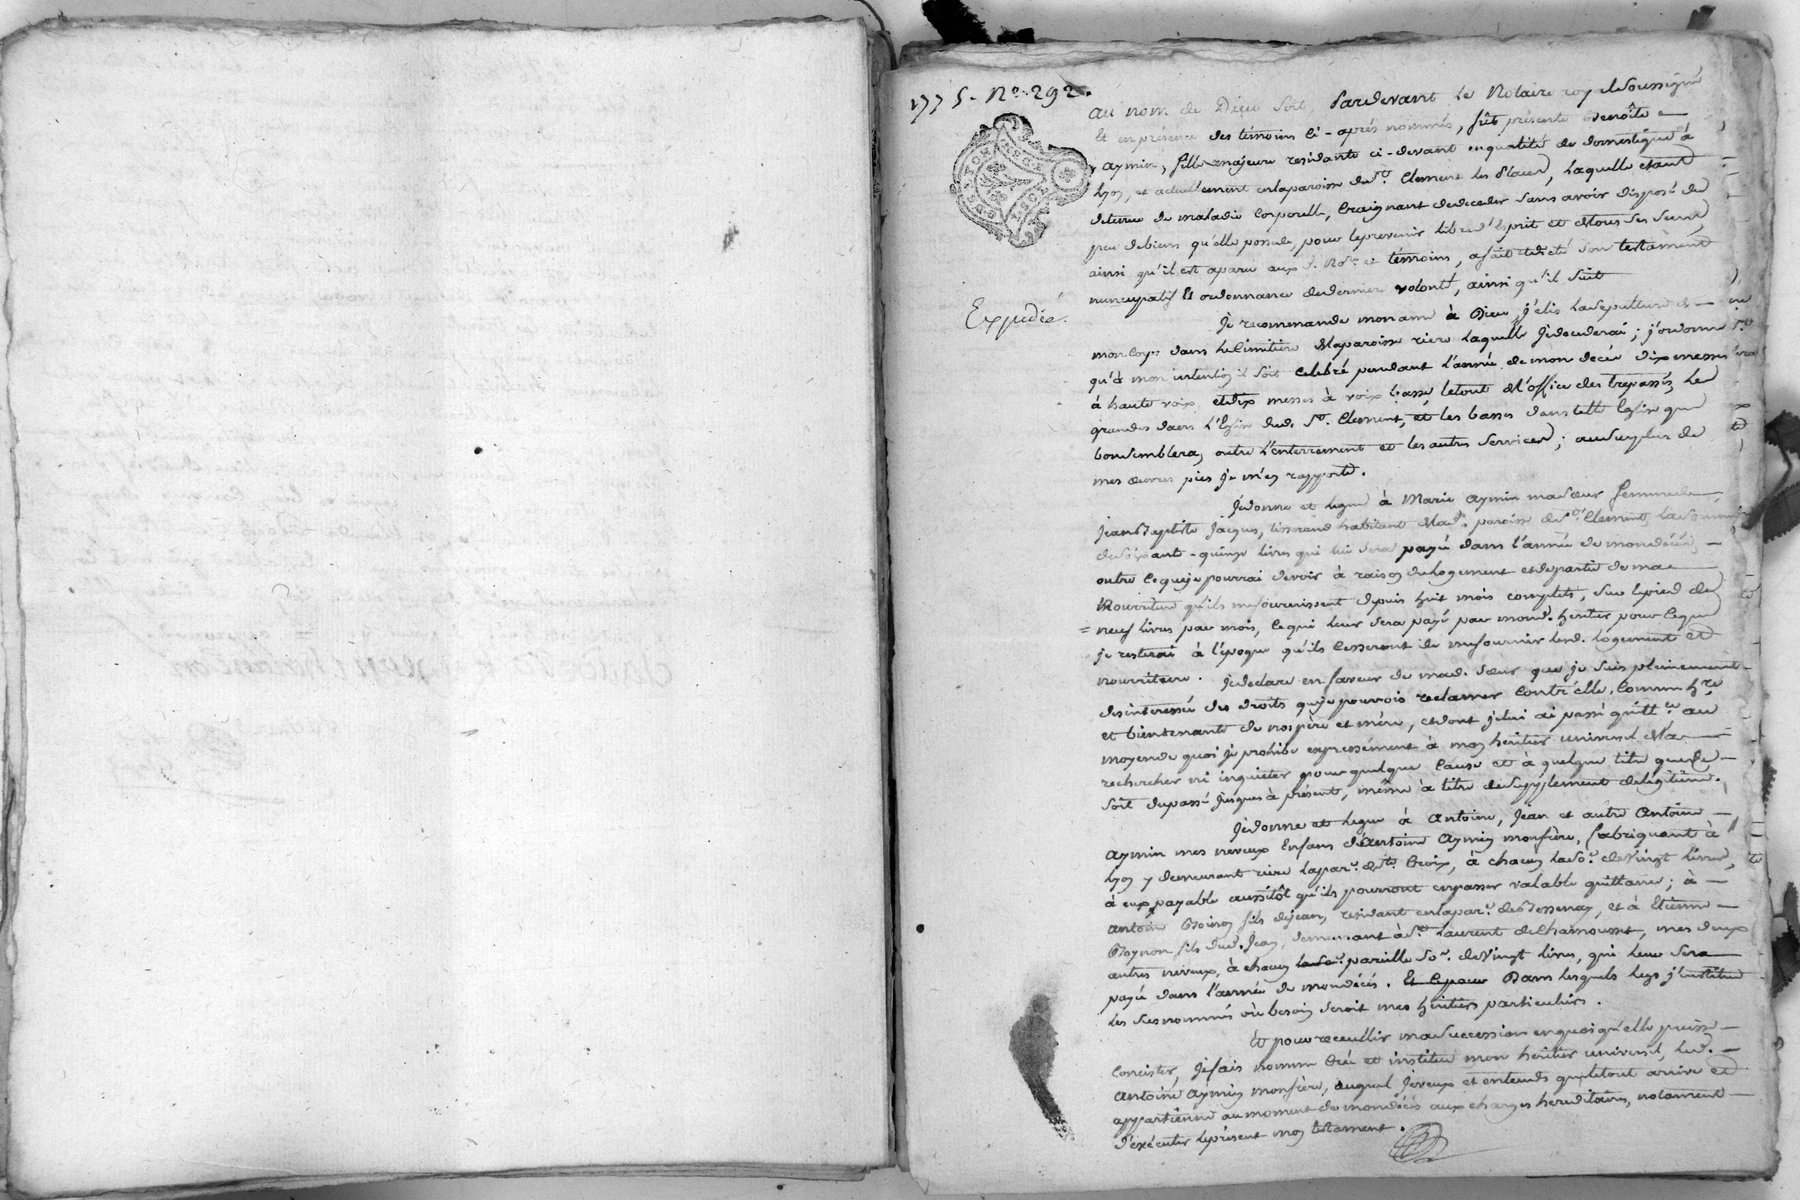 1775. No. 292.
au nom de Dieu soit, Pardevant le Notaire royal soussigné
Et en présence des témoins ci-après nommés, fût présente Benoîte
Aymin, fille majeure residante ci-devant en qualité de domestique à
Lyon, et actuellement en la paroisse de St. Clement les Places, laquelle etant
detenue de maladie corporelle, craignant de deceder sans avoir disposé du
peu de biens qu'elle possede, pour le prevenir libre d'esprit et de tous ses sens,
ainsi qu'il est aparu aux d. No.re et témoins, a fait et dicté son testament
nuncupatif Et ordonnance de derniere volonté, ainsi qu'il suit
Expediée.
Je recommande mon ame à Dieu, j'élis la sepulture de
mon corps dans le Cimitiere de la paroisse riere laquelle je decederai; j'ordonne
qu'à mon intention il soit celebré pendant l'année de mon decés dix messes
à haute voix, et dix messes à voix basse, le tout de l'office des trepassés, les
grandes dans l'Eglise dud. St. Clement, et les basses dans telle Eglise que
bon semblera, outre l'enterrement et les autres services; au surplus de
mes œuvres pies je m'en rapporte.
Je donne et legue à Marie Aymin ma sœur femme de
Jean Baptiste Jacques, tisserand habitant de lad. paroisse de St. Clement, la somme
de soixante-quinze livres qui lui sera payée dans l'année de mon décés,
outre ce que je pourrai devoir à raison du logement et de partie de ma
Nourriture qu'ils me fournissent depuis huit mois complets, sur le pied de
neuf livres par mois, ce qui leur sera payé par mond. heritier pour ce que
je resterai à l'époque qu'ils cesseront de me fournir lesd. logement et
nourriture. Je declare en faveur de mad. sœur que je suis pleinement
desinteressée des droits que je pourrois reclamer contr'elle, comme hre
et bientenante de nos père et mère, et dont je lui ai passé quitt.ce au
moyen de quoi je prohibe expressément à mon héritier universel de la
rechercher ni inquieter pour quelque cause et à quelque titre que ce
soit du passé jusques à présent, même à titre de supplement de légitime.
Je donne et legue à Antoine, Jean et autre Antoine
Aymin mes neveux Enfans d'Antoine Aymin mon frère, fabriquant à
Lyon y demeurant riere la par. Ste Croix, à chacun la so. de vingt livres,
à eux payable aussitôt qu'ils pourront en passer valable quittance; à
Antoine Poinon fils de Jean, residant en la par. de Bessenay, et à Etienne
Poynon fils dud. Jean, demeurant à St. Laurent de Chamousset, mes deux
autres neveux, à chacun la so. pareille so. de vingt livres, qui leur sera
payée dans l'année de mon décés. Et le pour Dans lesquels legs j'institue
les susnommés où besoin seroit mes héritiers particuliers.
Et pour receuillir ma succession en quoi qu'elle puisse
concister, je fais nomme Crée et institue mon heritier universel, led.
Antoine Aymin mon frère, auquel je veux et entends que le tout arrive et
appartienne au moment de mon décés aux charges hereditaires, notament
d'exécuter le présent mon testament.